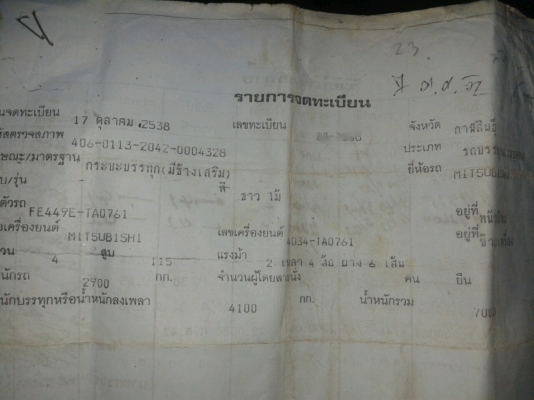 23.
รายการจดทะเบียน
นจดทะเบียน 17 ตุลาคม 2538 เลขทะเบียน จังหวัด กาฬสินธุ์
ัสตรวจสภาพ 406-0113-2042-0004328 ประเภท
ษณะ/มาตรฐาน กระบะบรรทุก(มีข้างเสริม) ยี่ห้อรถ MITSUBISHI
บ/รุ่น - สี ขาว ไม้
ตัวรถ FE449E-TA0761 อยู่ที่
เครื่องยนต์ MITSUBISHI เลขเครื่องยนต์ 4D34-TA0761 อยู่ที่
วน 4 สูบ 115 แรงม้า 2 เพลา 4 ล้อ ยาง 6 เส้น
นักรถ 2900 กก. จำนวนผู้โดยสาร นั่ง คน ยืน
นักบรรทุกหรือน้ำหนักลงเพลา 4100 กก. น้ำหนักรวม